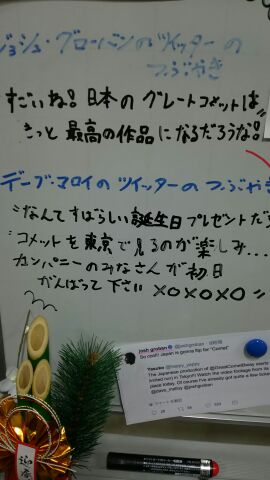 ジョシュ・グローバンのツイッターの
つぶやき
すごいね! 日本の グレートコメットは
きっと 最高の作品 になるだろうな!
デーブ・マロイの ツイッターの つぶやき
"なんてすばらしい誕生日プレゼントだ
コメットを東京で見るのが楽しみ...
カンパニーのみなさんが初日
がんばって下さい XOXOXO"
josh groban @joshgroban
So cool!! Japan is gonna flip for "Comet"
Yasuko
The Japanese production of @GreatCometBway starts
limited run) in Tokyo!! Watch the video footage from its
place today. Of course I've already got quite a few ticket
@dave_malloy @joshgroban
迎春